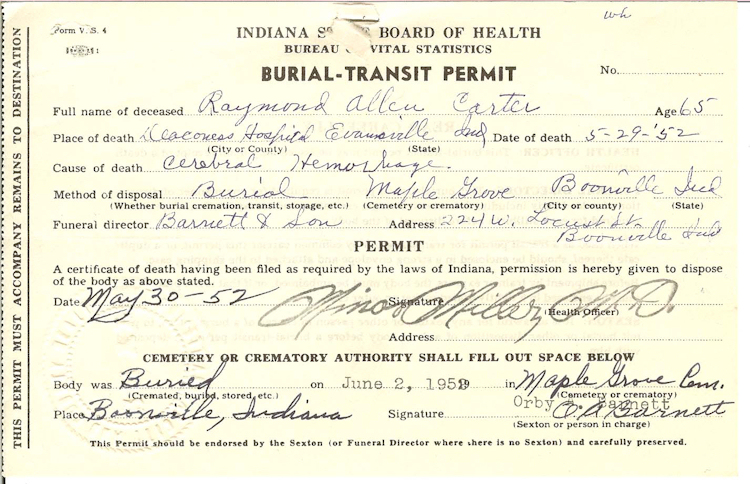 wh
Form V. S. 4
INDIANA S E BOARD OF HEALTH
BUREAU O VITAL STATISTICS
BURIAL-TRANSIT PERMIT
No.
Full name of deceased Raymond Allen Carter Age 65
Place of death Deaconess Hospital Evansville Ind Date of death 5-29-'52
(City or County) (State)
Cause of death Cerebral Hemorhage.
Method of disposal Burial Maple Grove Boonville Ind
(Whether burial cremation, transit, storage, etc.) (Cemetery or crematory) (City or county) (State)
Funeral director Barnett & Son Address 224 W. Locust St.
Boonville Ind
PERMIT
A certificate of death having been filed as required by the laws of Indiana, permission is hereby given to dispose
of the body as above stated.
Date May 30-52 Signature Miller M.D.
(Health Officer)
Address
CEMETERY OR CREMATORY AUTHORITY SHALL FILL OUT SPACE BELOW
Body was Buried on June 2, 1952 in Maple Grove Cem.
(Cremated, buried, stored, etc.) (Cemetery or crematory)
Orby Barnett
Place Boonville, Indiana Signature O. A. Barnett
(Sexton or person in charge)
This Permit should be endorsed by the Sexton (or Funeral Director where there is no Sexton) and carefully preserved.
THIS PERMIT MUST ACCOMPANY REMAINS TO DESTINATION